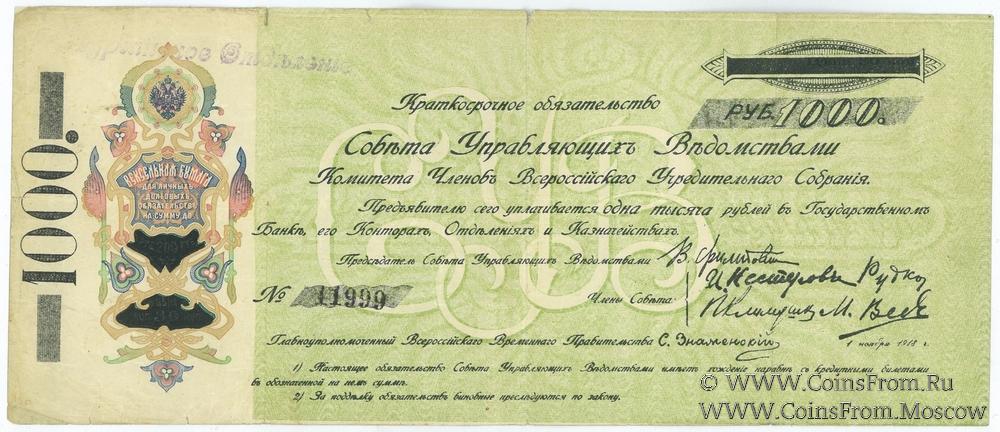 Отдѣленіе
1000.
ВЕКСЕЛЬНАЯ БУМАГА
ДЛЯ ЛИЧНЫХЪ
ДОЛГОВЫХЪ
ОБЯЗАТЕЛЬСТВЪ
НА СУММУ ДО
РУБ. 1000.
Краткосрочное обязательство
Совѣта Управляющихъ Вѣдомствами
Комитета Членовъ Всероссійскаго Учредительнаго Собранія.
Предъявителю сего уплачивается одна тысяча рублей въ Государственномъ
Банкѣ, его Конторахъ, Отдѣленіяхъ и Казначействахъ.
Предсѣдатель Совѣта Управляющихъ Вѣдомствами
№ 11999
Члены Совѣта:
И. Нестеровъ Рудко
П. Климушк М. Веде
Главноуполномоченный Всероссійскаго Временнаго Правительства С. Знаменскій
1 ноября 1918 г.
1) Настоящее обязательство Совѣта Управляющихъ Вѣдомствами имѣетъ хожденіе наравнѣ съ кредитными билетами
въ обозначенной на немъ суммѣ.
2) За поддѣлку обязательствъ виновные преслѣдуются по закону.
© WWW.CoinsFrom.Ru
WWW.CoinsFrom.Moscow